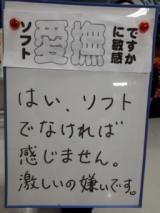 ソフト
愛撫
に敏感
ですか
はい、ソフト
でなければ
感じません。
激しいの嫌いです。